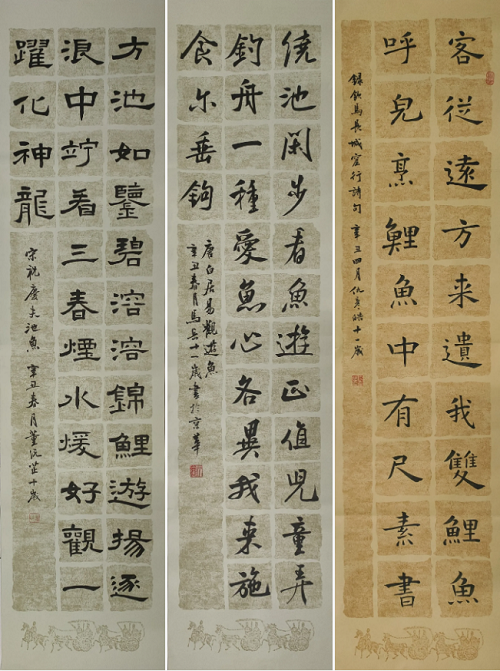 客從遠方来遺我雙鯉魚
呼兒烹鯉魚中有尺素書
錄飲馬長城窟行詩句 辛丑四月仇十一歲
繞池閑步看魚遊正值児童弄
釣舟一種愛魚心各異我来施
食尔垂鉤
唐白居易觀遊魚
辛丑春月馬長十一歲書於京華
方池如鑒碧溶溶錦鯉遊揚逐
浪中竚看三春煙水煖好觀一
躍化神龍
宋祝慶夫池魚 辛丑春月董沅芷十歲